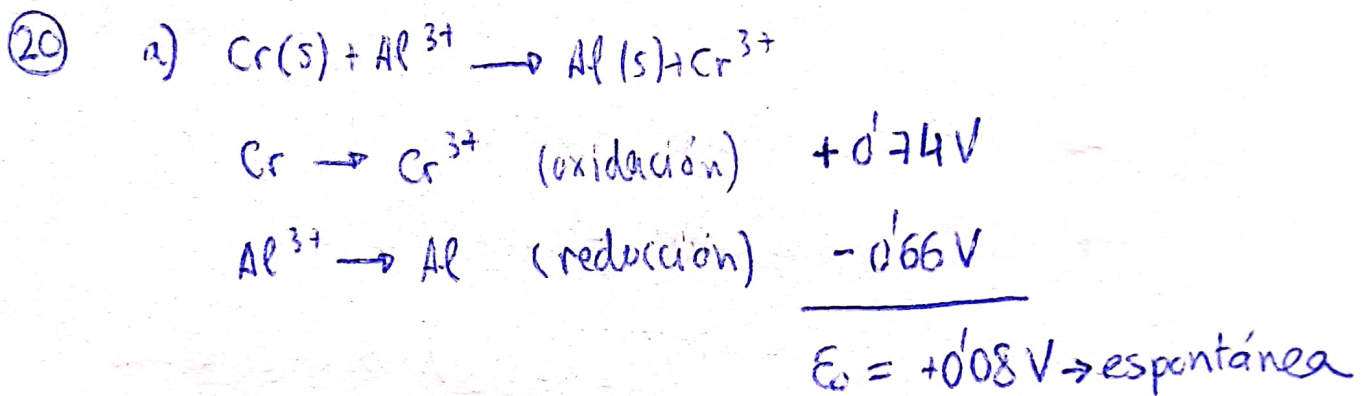 20 a) Cr(s) + Al³⁺ → Al(s) + Cr³⁺
Cr → Cr³⁺ (oxidación) +0'74 V
Al³⁺ → Al (reducción) -0'66 V
ε₀ = +0'08 V → espontánea